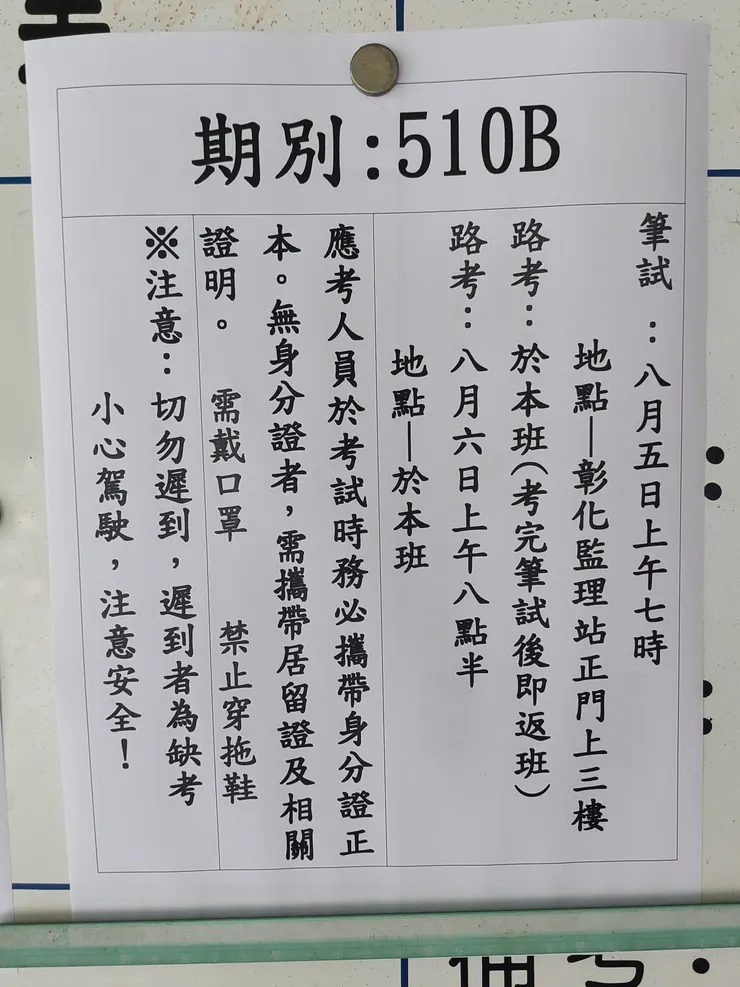 期別:510B
筆試：八月五日上午七時
地點—彰化監理站正門上三樓
路考：於本班(考完筆試後即返班)
路考：八月六日上午八點半
地點—於本班
應考人員於考試時務必攜帶身分證正
本。無身分證者，需攜帶居留證及相關
證明。 需戴口罩 禁止穿拖鞋
※注意：切勿遲到，遲到者為缺考
小心駕駛，注意安全！